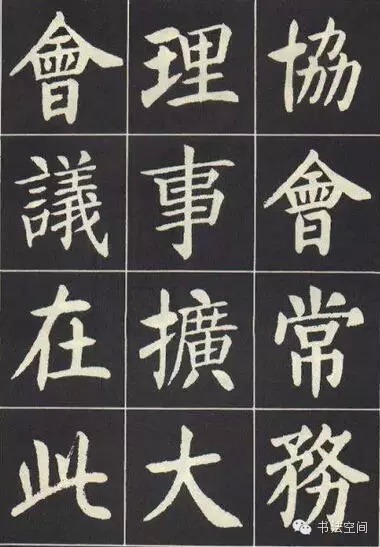 協會常務
理事擴大
會議在此
书法空间